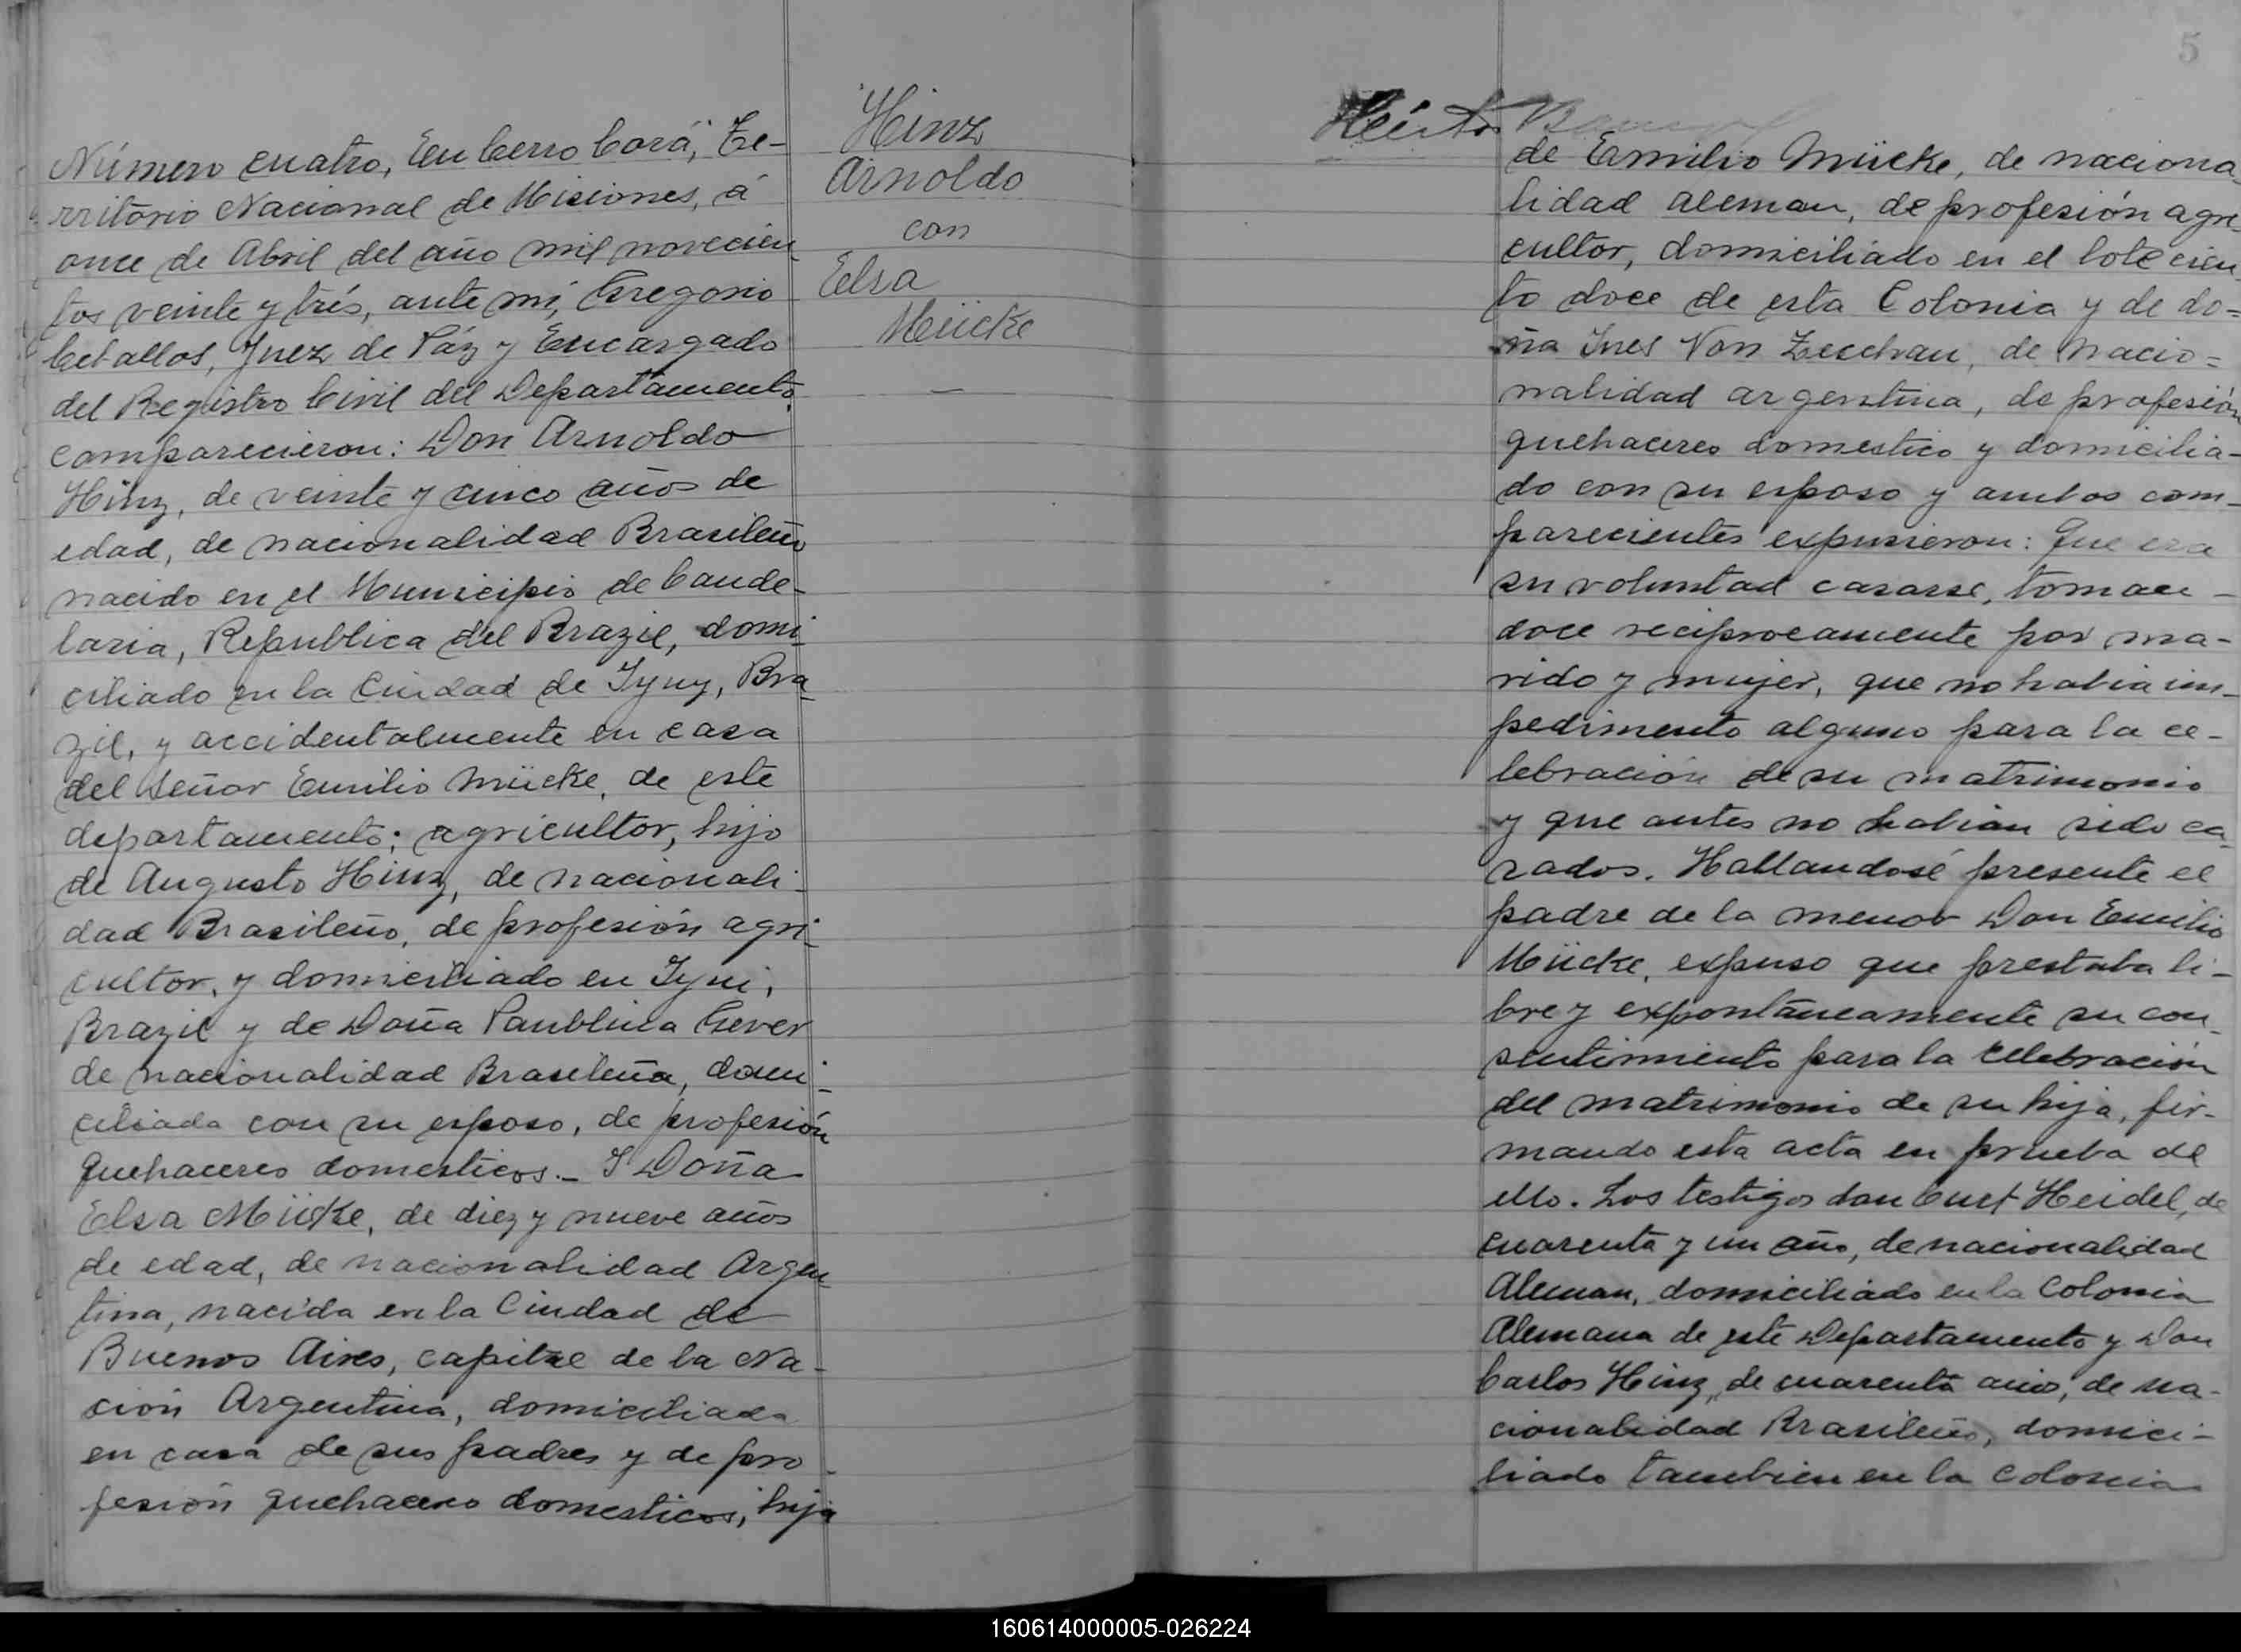 Número cuatro, En Cerro Corá, Te-
rritorio Nacional de Misiones, á
once de Abril del año mil novecien-
tos veinte y trés, ante mí, Gregorio
Ceballos, Juez de Páz y Encargado
del Registro Civil del Departamento,
comparecieron: Don Arnoldo
Hinz, de veinte y cinco años de
edad, de nacionalidad Brasileño
nacido en el Municipio de Cande-
laria, Republica del Brazil, domi-
ciliado en la Ciudad de Iyuy, Bra-
zil, y accidentalmente en casa
del Señor Emilio Mücke, de este
departamento; agricultor, hijo
de Augusto Hinz, de nacionali-
dad Brasileño, de profesión agri-
cultor, y domiciliado en Iyui,
Brazil y de Doña Paublina Gever
de nacionalidad Brasileña, domi-
ciliada con su esposo, de profesión
quehaceres domesticos.- Y Doña
Elsa Mücke, de diez y nueve años
de edad, de nacionalidad Argen-
tina, nacida en la Ciudad de
Buenos Aires, capital de la Na-
ción Argentina, domiciliada
en casa de sus padres y de pro-
fesión quehaceres domesticos, hija
Hinz
Arnoldo
con
Elsa
Mücke
5
de Emilio Mücke, de naciona-
lidad aleman, de profesión agri-
cultor, domiciliado en el lote cien-
to doce de esta Colonia y de do=
ña Ines Von Zeschau, de nacio=
nalidad argentina, de profesión
quehaceres domestico y domicilia-
do con su esposo y ambos com-
parecientes expusieron: Que era
su voluntad casarse, toman-
doce reciprocamente por ma-
rido y mujer, que no habia im-
pedimento alguno para la ce-
lebración de su matrimonio
y que antes no habian sido ca-
sados. Hallandosé presente el
padre de la menor Don Emilio
Mücke, expuso que prestaba li-
bre y expontáneamente su con-
sentimiento para la celebración
del matrimonio de su hija, fir-
mando esta acta en prueba de
ello. Los testigos don Curt Heidel, de
cuarenta y un año, de nacionalidad
Aleman, domiciliado en la Colonia
Alemana de este Departamento y Don
Carlos Hinz, de cuarenta años, de na-
cionalidad Brasileño, domici-
liado tambien en la Colonia
160614000005-026224